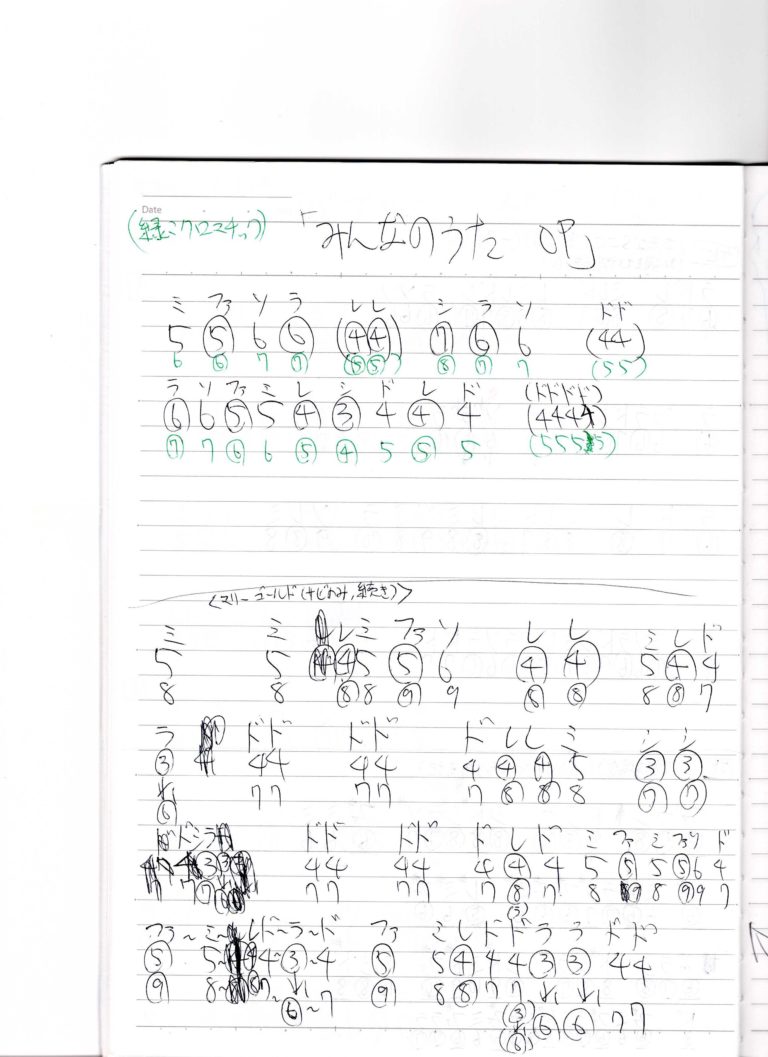 Date
(緑:クロマチック) 「みんなのうた OP」
ミ ファ ソ ラ レレ シ ラ ソ ドド
5 ⑤ 6 ⑥ (④④) ⑦ ⑥ 6 (44)
6 ⑥ 7 ⑦ (⑤⑤) ⑧ ⑦ 7 (55)
ラ ソ ファ ミ レ シ ド レ ド (ドドドド)
⑥ 6 ⑤ 5 ④ ③ 4 ④ 4 (4444)
⑦ 7 ⑥ 6 ⑤ ④ 5 ⑤ 5 (5555)
<マリーゴールド(サビのみ,続き)>
ミ ミ レ ミ ファ ソ レ レ ミ レ ド
5 5 ④ 5 ⑤ 6 ④ ④ 5 ④ 4
8 8 ⑧ 8 ⑨ 9 ⑧ ⑧ 8 ⑧ 7
ラ ドド ドド ド レ レ ミ シ シ
③ 44 44 4 ④ ④ 5 ③ ③
↓ 77 77 7 ⑧ ⑧ 8 ⑦ ⑦
⑥
ド ド シ ラ ドド ドド ド レ ド ミ ファ ミ ファ ソ ド
4 ③ ③ 44 44 4 ④ 4 5 ⑤ 5 ⑤ 6 4
7 ⑦ 77 77 7 ⑧ 7 8 ⑨ 8 ⑨ 9 7
ファ ~ ミ ~ レ ド ~ ラ ~ ド ファ ミ レ ド ド ラ ラ ド ド
⑤ 5 ~ 4 ~ ③ ~ 4 ⑤ 5 ④ 4 4 ③ ③ 4 4
⑨ 8 ~ 7 ~ ↓ ⑨ 8 ⑧ 7 7 ↓ ↓
⑥ ~ 7 (③) ⑥ ⑥ 7 7
(⑥)